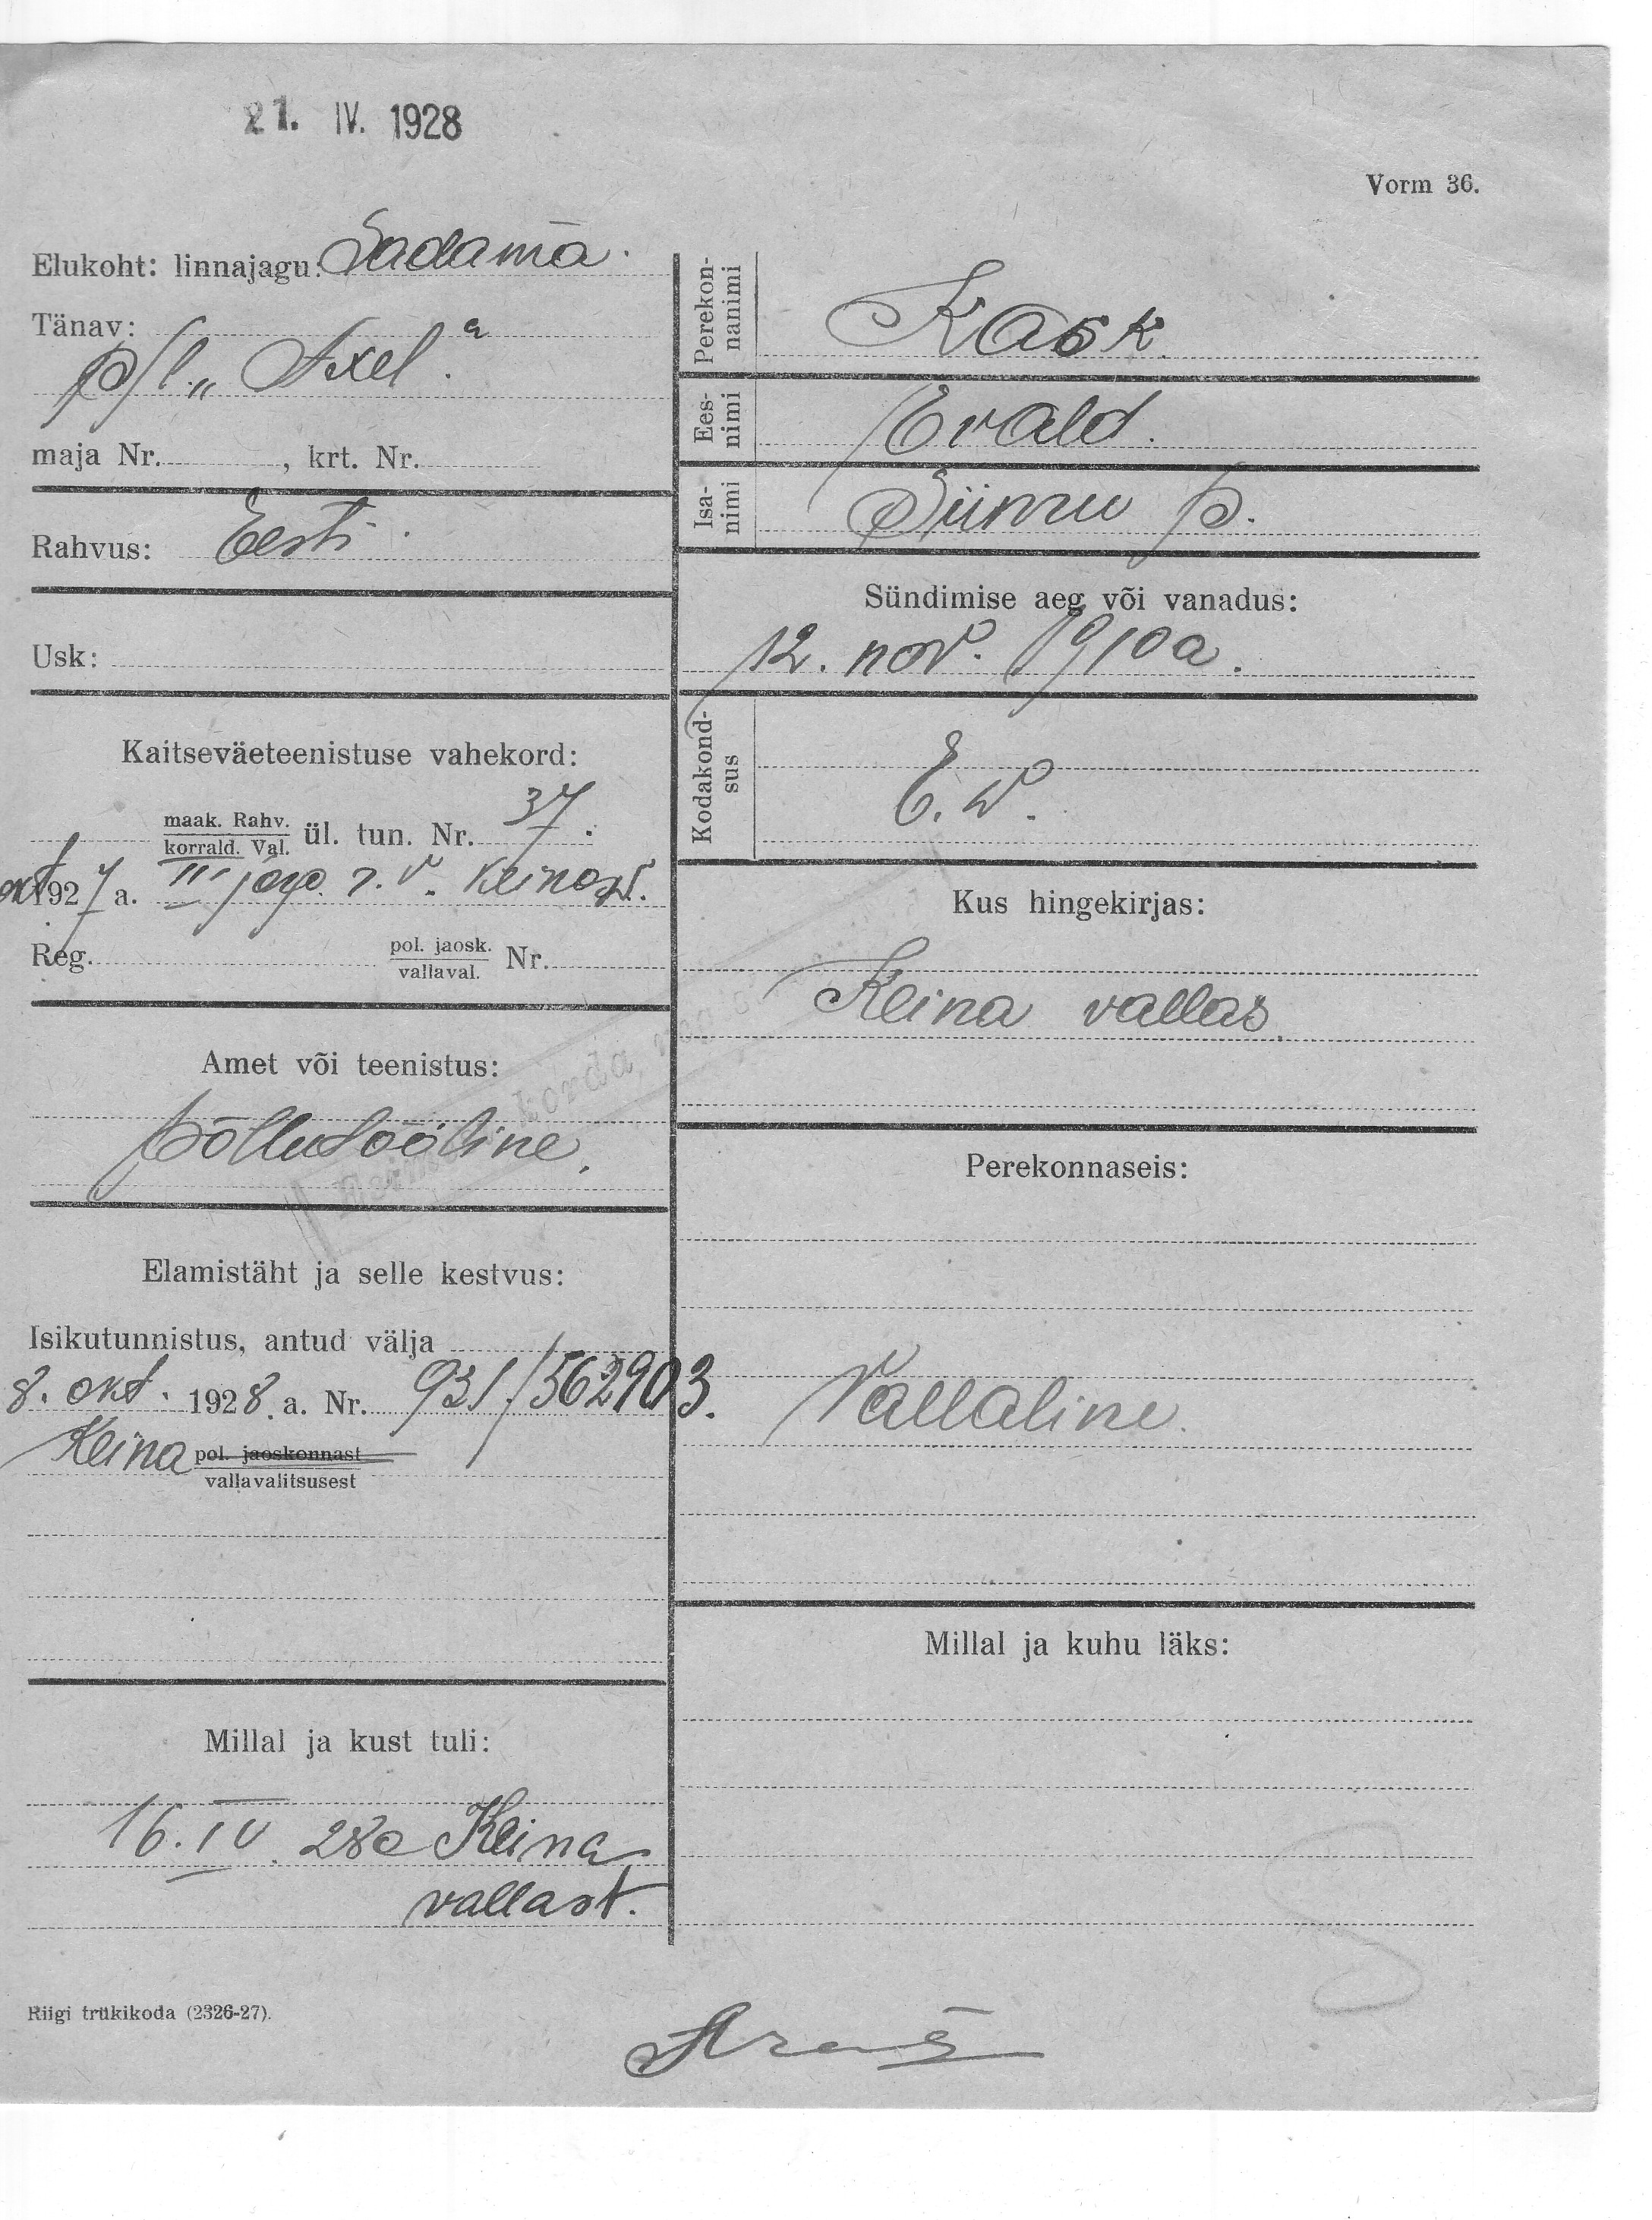 21. IV. 1928
Vorm 36.
Elukoht: linnajagu: Sadama.
Tänav:
p/l. „Axel“.
maja Nr. , krt. Nr.
Rahvus: Eesti.
Usk:
Kaitseväeteenistuse vahekord:
maak. Rahv.
korrald. Val. ül. tun. Nr. 37.
okt 1927 a. III jago. r. v. Keinast.
Reg. pol. jaosk.
vallaval. Nr.
Amet või teenistus:
põllutööline.
Elamistäht ja selle kestvus:
Isikutunnistus, antud välja
8. okt. 1928. a. Nr. 931/562903.
Keina pol. jaoskonnast
vallavalitsusest
Millal ja kust tuli:
16. IV. 28a Keina
vallast.
Riigi trükikoda (2326-27).
Perekon-
nanimi
Kask
Ees-
nimi
Evald.
Isa-
nimi
Siimu p.
Sündimise aeg või vanadus:
12. nov. 1910a.
Kodakond-
sus
E. W.
Kus hingekirjas:
Keina vallas.
Perekonnaseis:
Vallaline.
Millal ja kuhu läks: